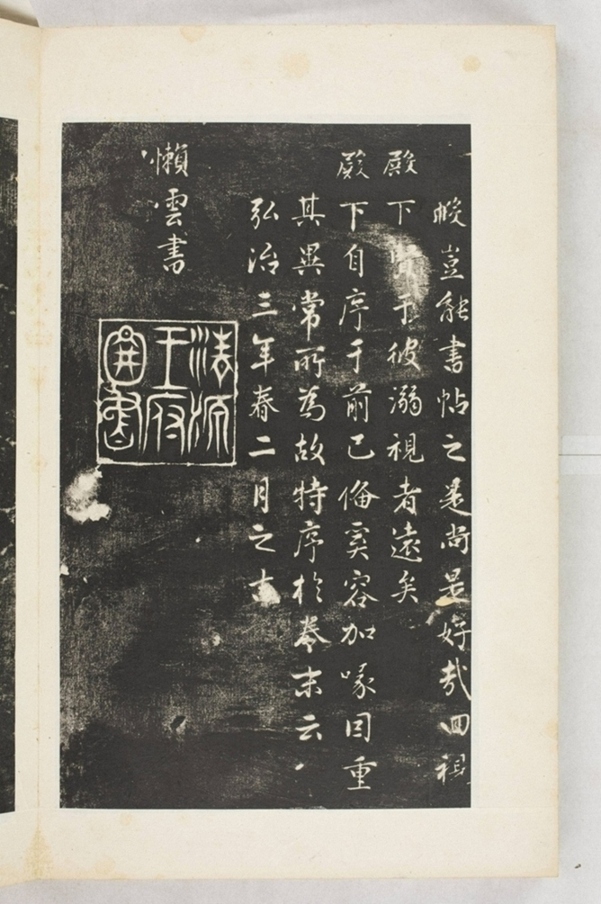 暇豈能書帖之是尚是好哉回視
殿下賢于彼溺視者遠矣
殿下自序于前已備奚容加喙因重
其異常所為故特序於卷末云
弘治三年春二月之吉
懶雲書
王府
圖書